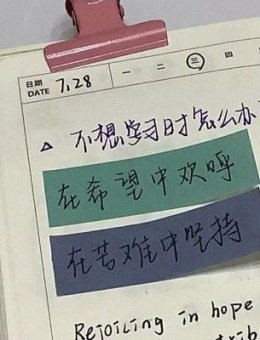 日期 DATE 7.28 一 二 三 四
△ 不想学习时怎么办
在希望中欢呼
在苦难中坚持
Rejoicing in hope